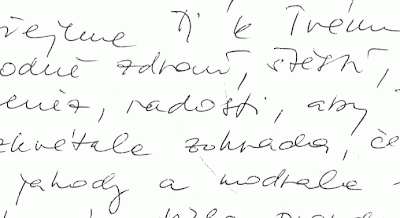 řejeme Ti k Tvému
odně zdraví, štěstí,
eněz, radosti, aby
zkvétala zahrada, če
jahody a modrala